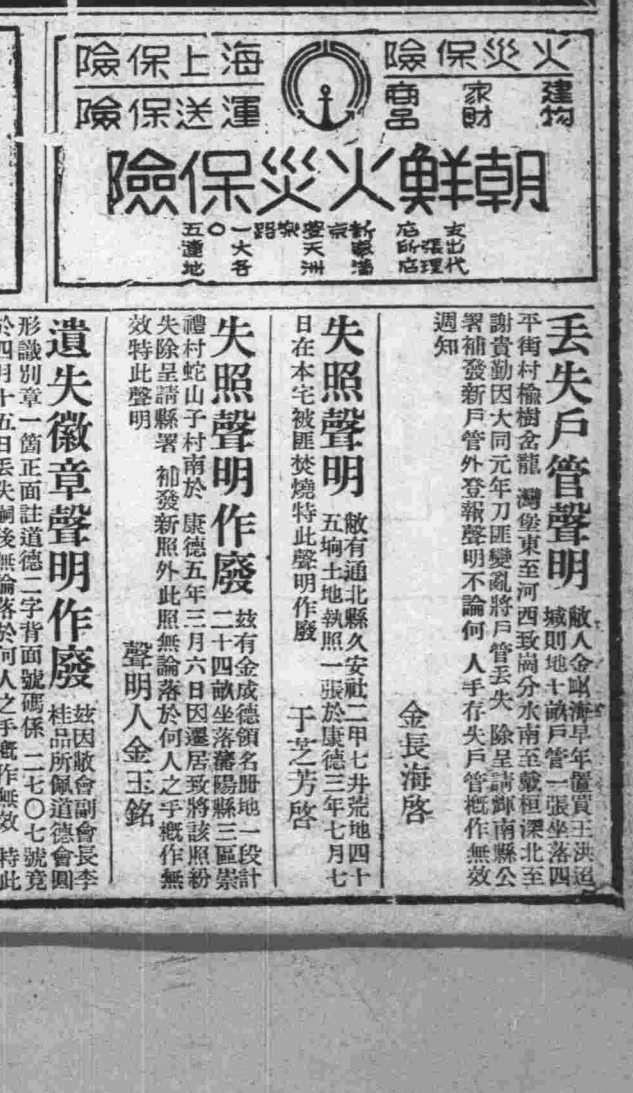 火災保險
建物 家財 商品
海上保險
運送保險
朝鮮火災保險
支店 新京豐樂路一〇五
出張所 奉天 大連
代理店 滿洲各地
丟失戶管聲明
敝人金長海早年置買王洪超
堿則地十畝戶管一張坐落四
平街村楡樹岔龍 灣堡東至河西致崗分水南至戴桓深北至
謝貴勤因大同元年刀匪變亂將戶管丟失 除呈請輝南縣公
署補發新戶管外登報聲明不論何 人手存失戶管槪作無效
週知
金長海啓
失照聲明
敝有通北縣久安社二甲七井荒地四十
五垧土地執照一張於康德三年七月七
日在本宅被匪焚燒特此聲明作廢
于芝芳啓
失照聲明作廢
玆有金成德領名册地一段計
二十四畝坐落瀋陽縣三區崇
禮村蛇山子村南於 康德五年三月六日因遷居致將該照紛
失除呈請縣署 補發新照外此照無論落於何人之手槪作無
效特此聲明
聲明人金玉銘
遺失徽章聲明作廢
玆因敝會副會長李
桂品所佩道德會圓
形識別章一箇正面註道德二字背面號碼係 二七〇七號竟
於四月十五日丟失嗣後無論落於何人之手槪作無效 特此